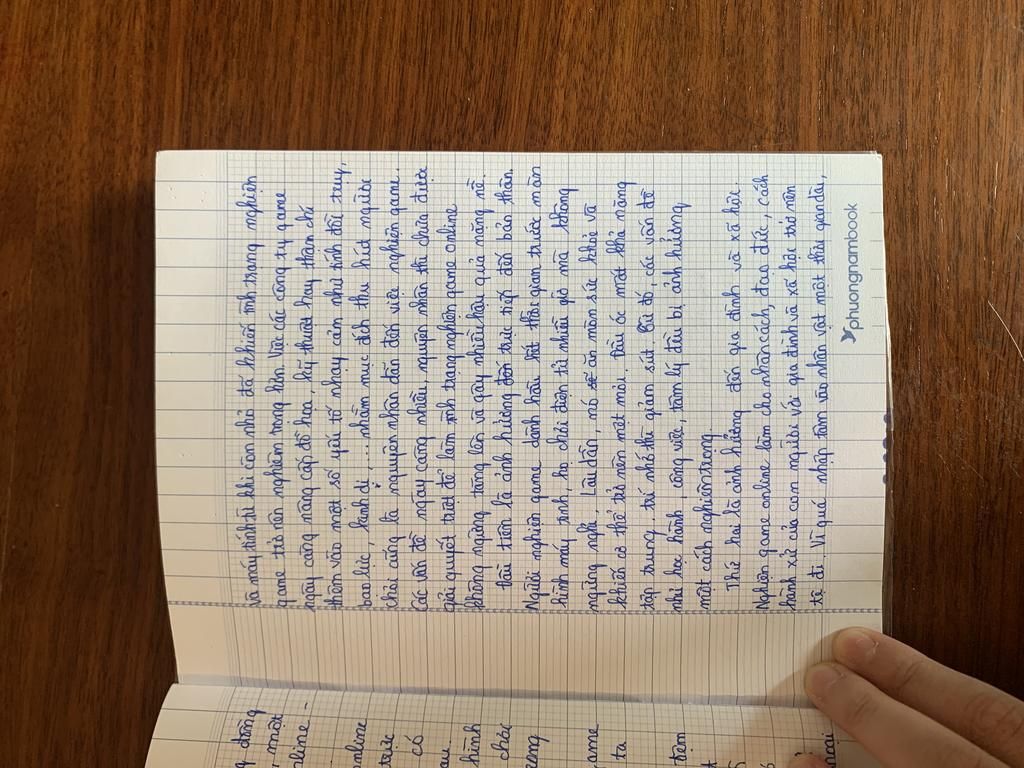 và máy tính từ khi còn nhỏ đã khiến tình trạng nghiện
game trở nên nghiêm trọng hơn. Việc các công ty game
ngày càng nâng cấp đồ họa, kỹ thuật hay thậm chí
thêm vào một số yếu tố nhạy cảm như tính đồi truỵ,
bạo lực, kinh dị,... nhằm mục đích thu hút người
chơi cũng là nguyên nhân dẫn đến việc nghiện game.
Các vấn đề ngày càng nhiều, nguyên nhân thì chưa được
giải quyết triệt để làm tình trạng nghiện game online
không ngừng tăng lên và gây nhiều hậu quả nặng nề.
Đầu tiên là ảnh hưởng trực tiếp đến bản thân.
Người nghiện game dành hầu hết thời gian trước màn
hình máy tính, họ chơi điện tử nhiều giờ mà không
ngừng nghỉ. Lâu dần, nó sẽ ăn mòn sức khỏe và
khiến cơ thể trở nên mệt mỏi. Đầu óc mất khả năng
tập trung, trí nhớ thì giảm sút. Từ đó, các vấn đề
như học hành, công việc, tâm lý đều bị ảnh hưởng
một cách nghiêm trọng.
Thứ hai là ảnh hưởng đến gia đình và xã hội.
Nghiện game online làm cho nhân cách, đạo đức, cách
hành xử của con người với gia đình và xã hội trở nên
tệ đi. Vì quá nhập tâm vào nhân vật một thời gian dài,
phuongnambook
dòng
, một
nline -
online
trực
có
au
hình
chóc
rong
game
ta
tiệm